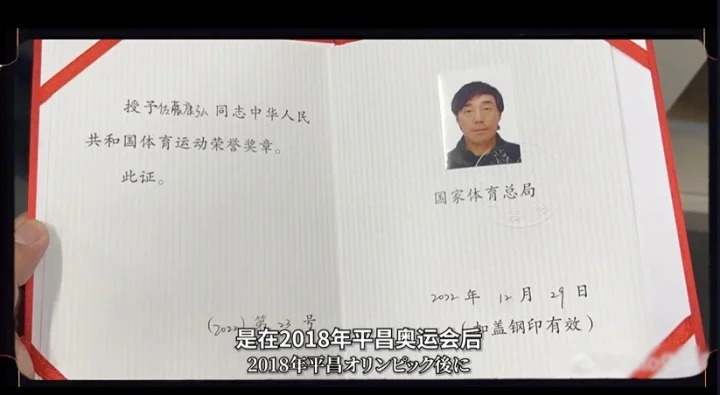 授予佐藤康弘同志中华人民
共和国体育运动荣誉奖章。
此证。
(2022)第 23 号
国家体育总局
2022年 12月 29日
(加盖钢印有效)
是在2018年平昌奥运会后
2018年平昌オリンピック後に